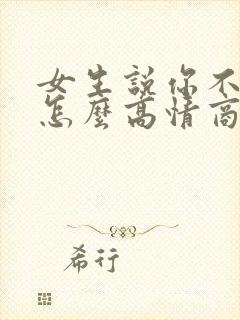 女生説你不
怎麼高情商
希行